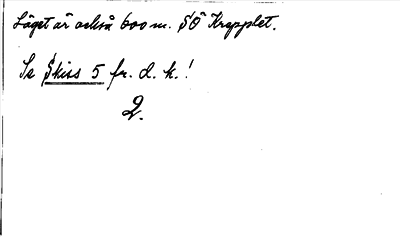 Läget är också 600 m. SÖ Krapplet.
Se Skiss 5 fr. d. k.!
2.